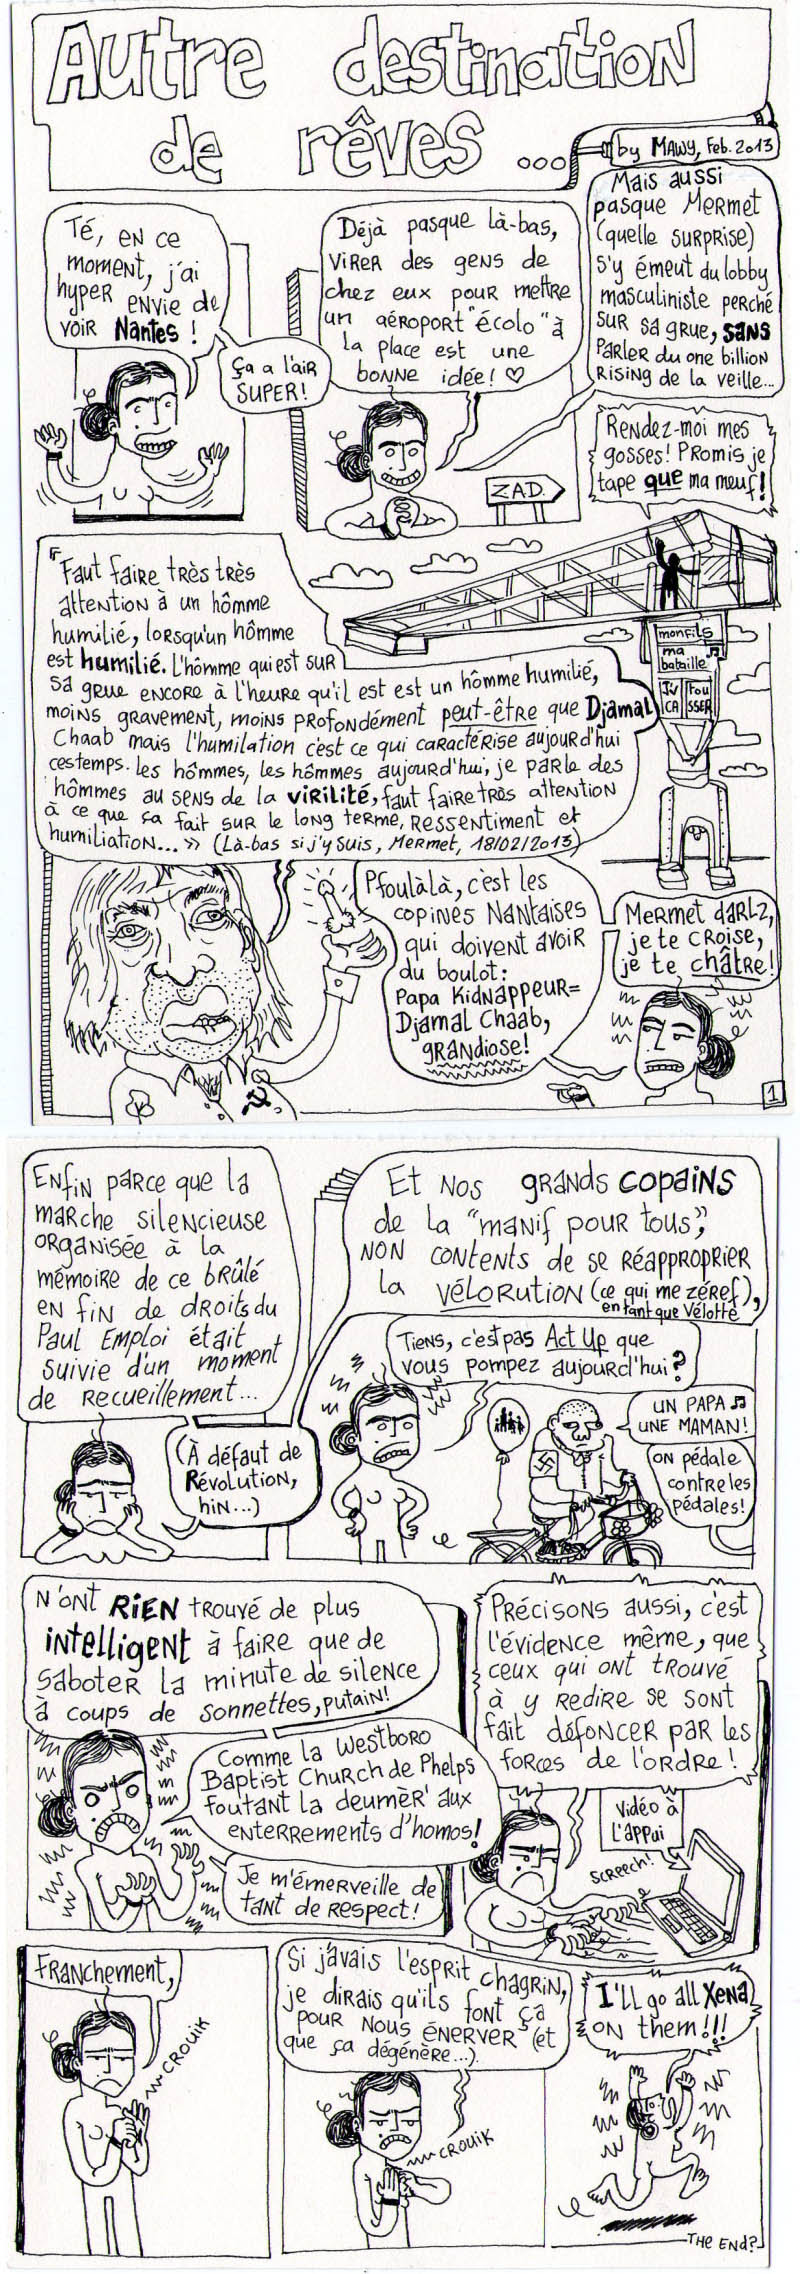 Autre destination
de rêves ...
by MAWY, Feb. 2013
Té, en ce
moment, j'ai
hyper envie de
voir Nantes !
Ça a l'air
SUPER!
Déjà pasque là-bas,
virer des gens de
chez eux pour mettre
un aéroport "écolo" à
la place est une
bonne idée! ♡
Mais aussi
pasque Mermet
(quelle surprise)
s'y émeut du lobby
masculiniste perché
sur sa grue, sans
parler du one billion
rising de la veille...
Z.A.D.
Rendez-moi mes
gosses! Promis je
tape que ma meuf!
"Faut faire très très
attention à un hômme
humilié, lorsqu'un hômme
est humilié. L'hômme qui est sur
sa grue encore à l'heure qu'il est est un hômme humilié,
moins gravement, moins profondément peut-être que Djamal
Chaab mais l'humilation c'est ce qui caractérise aujourd'hui
ces temps. Les hômmes, les hômmes aujourd'hui, je parle des
hômmes au sens de la virilité, faut faire très attention
à ce que ça fait sur le long terme, ressentiment et
humiliation... » (Là-bas si j'y suis, Mermet, 18/02/2013)
mon fils
ma
bataille ♫
JU
CA
FOU
SSER
Pfoulàlà, c'est les
copines Nantaises
qui doivent avoir
du boulot:
Papa Kidnappeur=
Djamal Chaab,
grandiose!
Mermet darlz,
je te croise,
je te châtre!
1
Enfin parce que la
marche silencieuse
organisée à la
mémoire de ce brûlé
en fin de droits du
Paul Emploi était
suivie d'un moment
de recueillement...
(À défaut de
Révolution,
hin...)
Et nos grands copains
de la "manif pour tous",
non contents de se réapproprier
la vélorution (ce qui me zéref),
en tant que Vélotte
Tiens, c'est pas Act Up que
vous pompez aujourd'hui?
UN PAPA ♫
UNE MAMAN!
On pédale
contre les
pédales!
N'ont RIEN trouvé de plus
intelligent à faire que de
saboter la minute de silence
à coups de sonnettes, putain!
Comme la Westboro
Baptist Church de Phelps
foutant la deumèr' aux
enterrements d'homos!
Je m'émerveille de
tant de respect!
Précisons aussi, c'est
l'évidence même, que
ceux qui ont trouvé
à y redire se sont
fait défoncer par les
forces de l'ordre !
Vidéo à
l'appui
SCREECH!
Franchement,
CROUIK
Si j'avais l'esprit chagrin,
je dirais qu'ils font ça
pour nous énerver (et
que ça dégénère...).
CROUIK
I'll go all Xena
on them!!!
THE END?